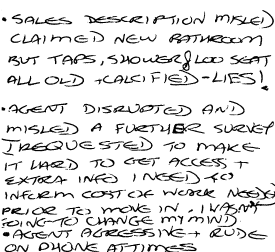 • SALES DESCRIPTION MISLED
CLAIMED NEW BATHROOM
BUT TAPS, SHOWER & LOO SEAT
ALL OLD + CALCIFIED - LIES!
• AGENT DISRUPTED AND
MISLED A FURTHER SURVEY
I REQUESTED TO MAKE
IT HARD TO GET ACCESS +
EXTRA INFO I NEEDED TO
INFORM COST OF WORK NEEDED
PRIOR TO MOVE IN. I WASN'T
GOING TO CHANGE MY MIND.
• AGENT AGRESSIVE + RUDE
ON PHONE AT TIMES